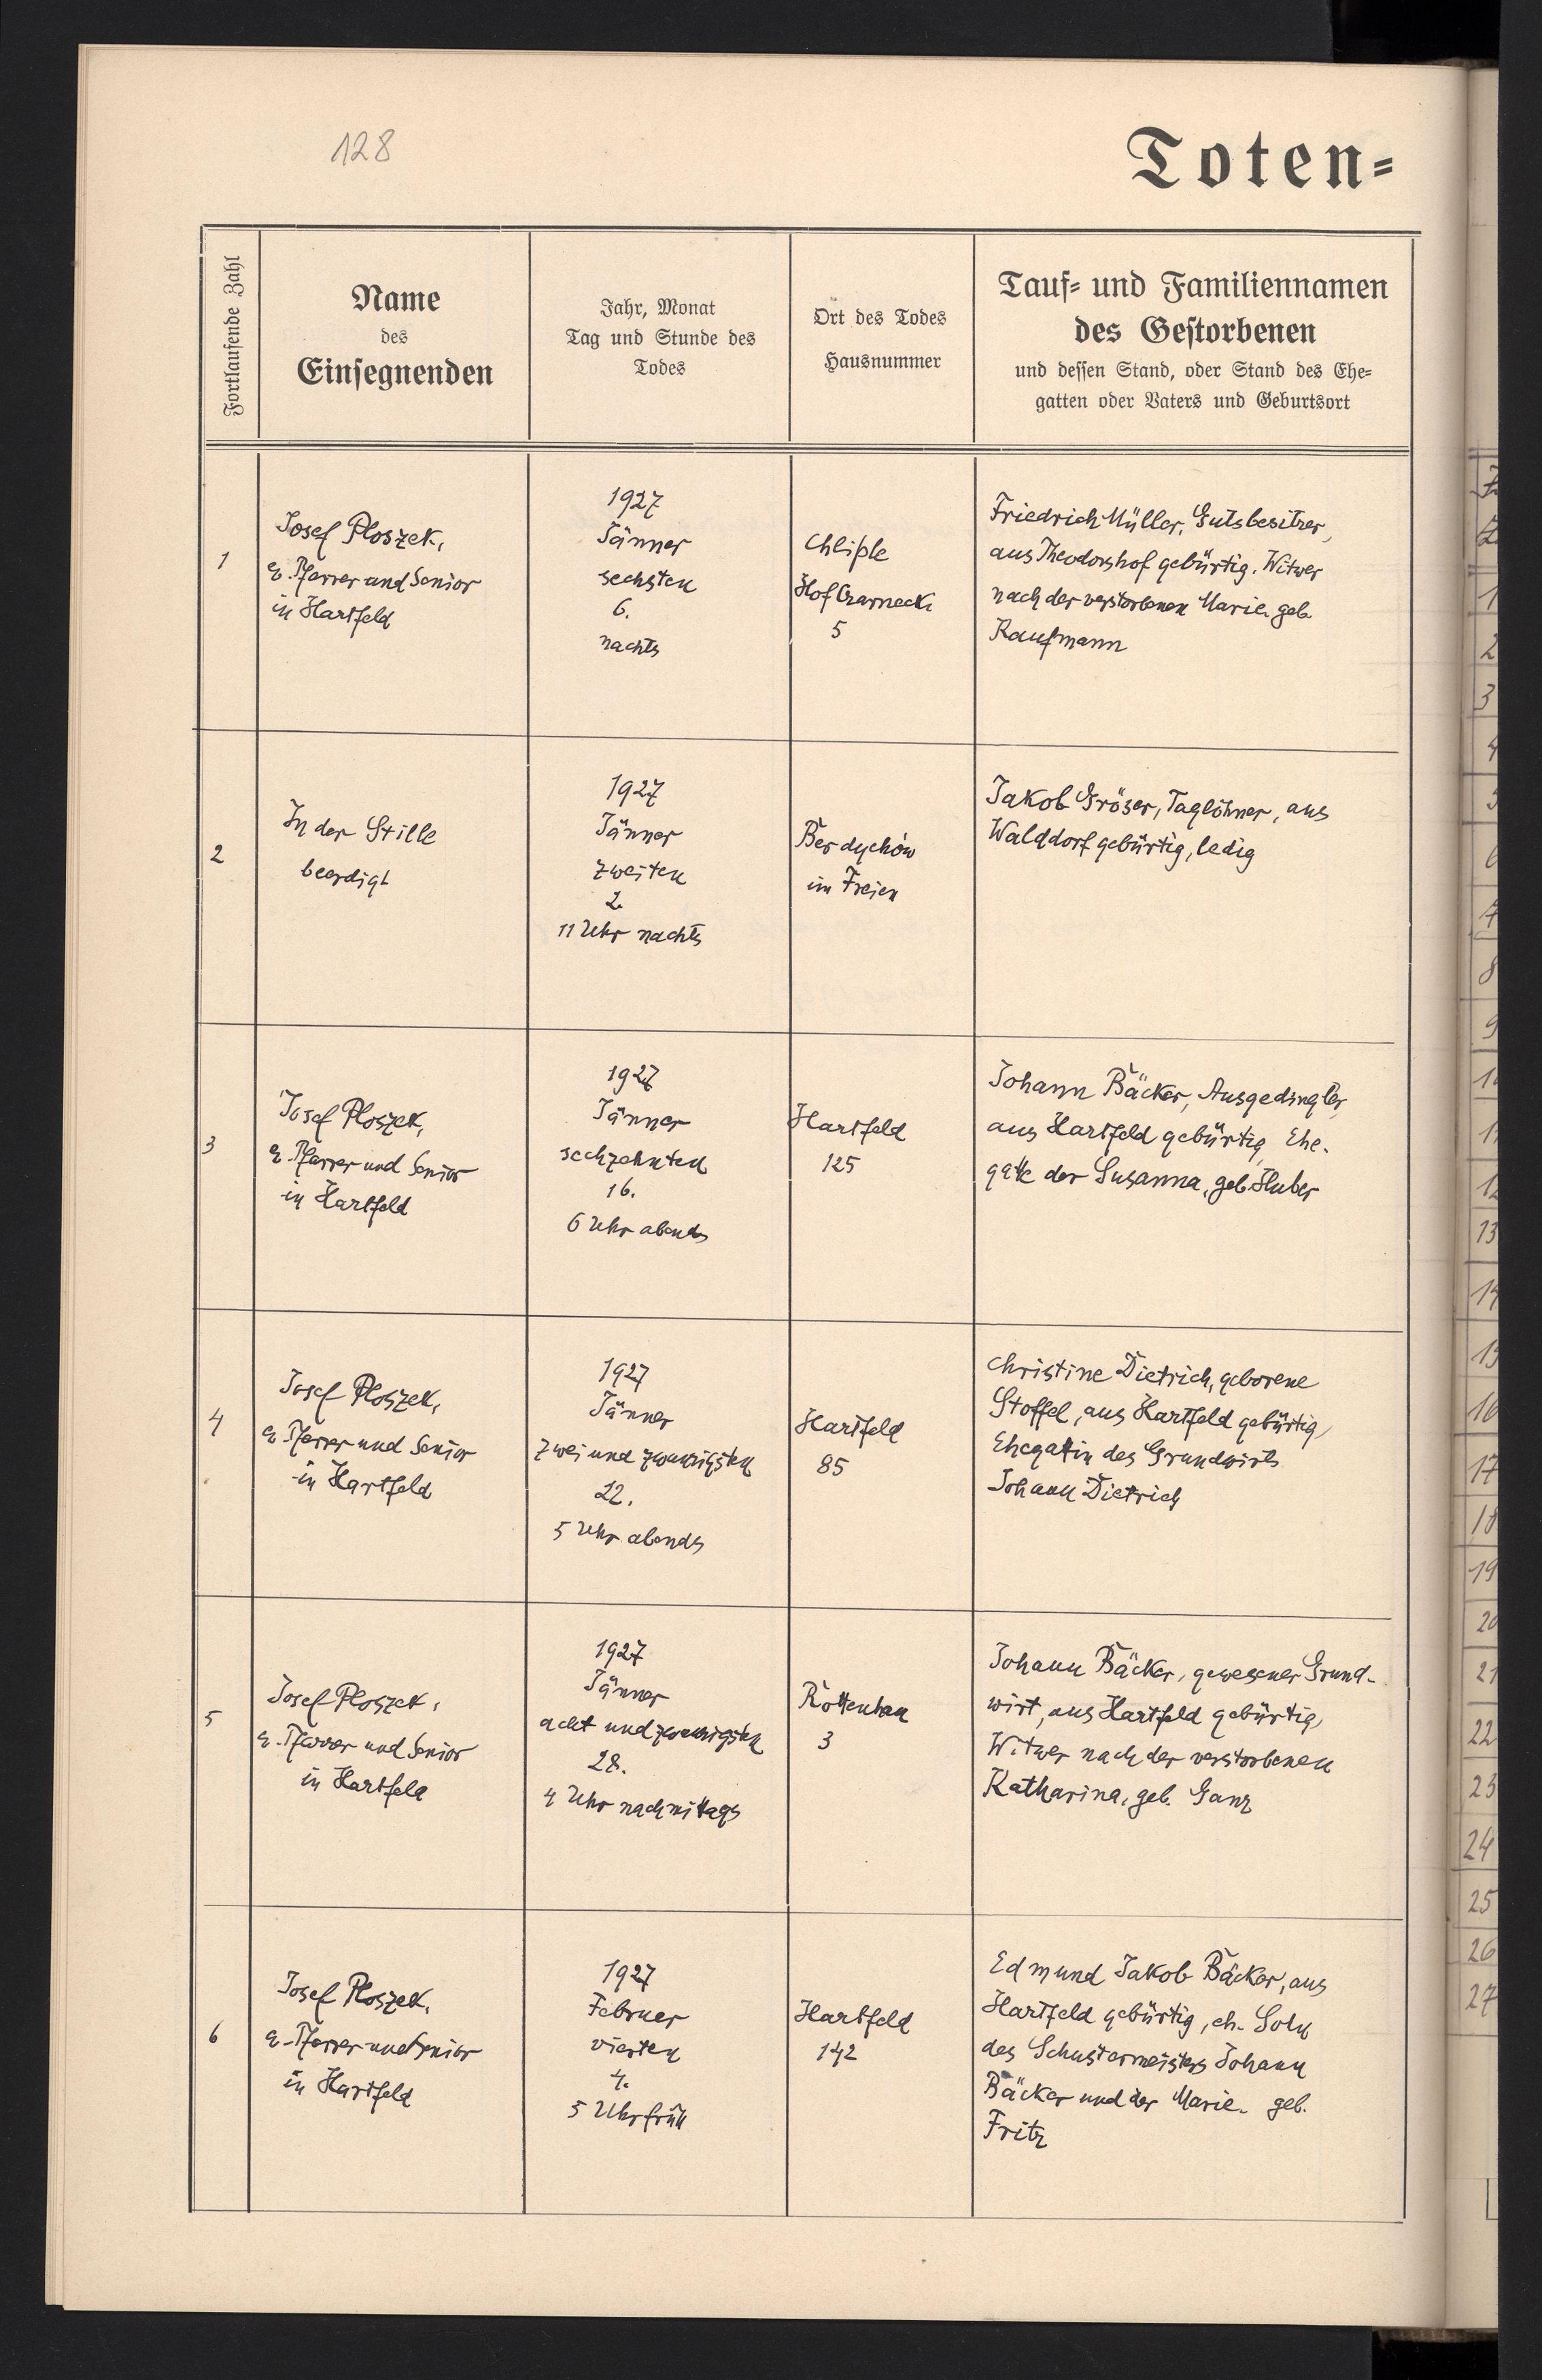 128
Toten=
Fortlaufende Zahl
Name
des
Einsegnenden
Jahr, Monat
Tag und Stunde des
Todes
Ort des Todes
Hausnummer
Tauf= und Familiennamen
des Gestorbenen
und dessen Stand, oder Stand des Ehe=
gatten oder Vaters und Geburtsort
1
Josef Ploszek,
ev. Pfarrer und Senior
in Hartfeld
1927
Jänner
sechsten
6.
nachts
Chliple
Hof Czarnecki
5
Friedrich Müller, Gutsbesitzer,
aus Theodorshof gebürtig. Witwer
nach der verstorbenen Marie. geb.
Kaufmann
2
In der Stille
beerdigt
1927
Jänner
zweiten
2.
11 Uhr nachts
Berdychów
im Freien
Jakob Gröser, Taglöhner, aus
Walddorf gebürtig, ledig
3
Josef Ploszek,
ev. Pfarrer und Senior
in Hartfeld
1927
Jänner
sechzehnten
16.
6 Uhr abends
Hartfeld
125
Johann Bäcker, Ausgedingler,
aus Hartfeld gebürtig, Ehe-
gatte der Susanna, geb. Huber
4
Josef Ploszek,
ev. Pfarrer und Senior
in Hartfeld
1927
Jänner
zwei und zwanzigsten
22.
5 Uhr abends
Hartfeld
85
Christine Dietrich, geborene
Stoffel, aus Hartfeld gebürtig,
Ehegattin des Grundwirts
Johann Dietrich
5
Josef Ploszek,
ev. Pfarrer und Senior
in Hartfeld
1927
Jänner
acht und zwanzigsten
28.
4 Uhr nachmittags
Rottenhan
3
Johann Bäcker, gewesener Grund-
wirt, aus Hartfeld gebürtig,
Witwer nach der verstorbenen
Katharina, geb. Ganz
6
Josef Ploszek,
ev. Pfarrer und Senior
in Hartfeld
1927
Februer
vierten
4.
5 Uhr früh
Hartfeld
142
Edmund Jakob Bäcker, aus
Hartfeld gebürtig, eh. Sohn
des Schustermeisters Johann
Bäcker und der Marie. geb.
Fritz
1
2
3
4
5
6
7
8
9
12
13
14
15
16
17
18
19
20
21
22
23
24
25
26
27